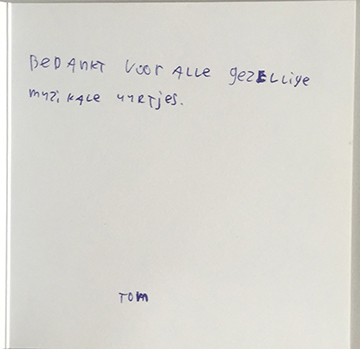 BEDANKT VOOR ALLE GEZELLIGE
MUZIKALE UURTJES.
TOM